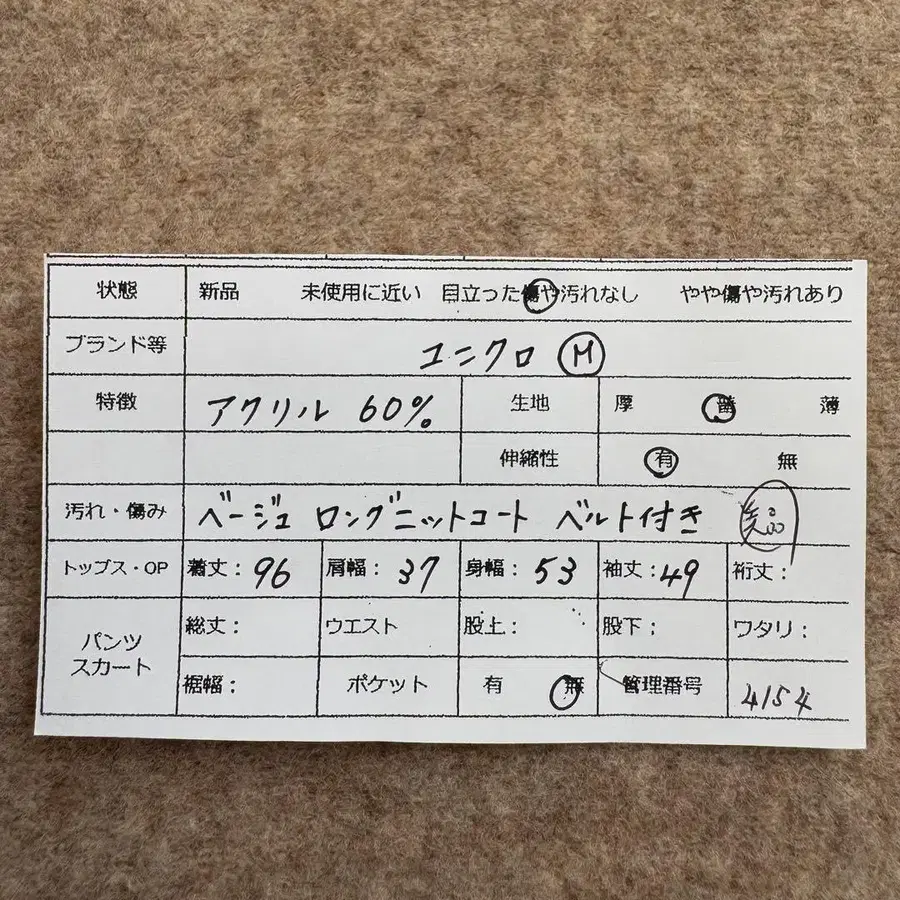 状態 新品 未使用に近い 目立った傷や汚れなし やや傷や汚れあり
ブランド等 ユニクロ M
特徴 アクリル 60% 生地 厚 普 薄
伸縮性 有 無
汚れ・傷み ベージュ ロングニットコート ベルト付き 美品
トップス・OP 着丈: 96 肩幅: 37 身幅: 53 袖丈: 49 裄丈:
パンツ
スカート
総丈: ウエスト 股上: 股下: ワタリ:
裾幅: ポケット 有 無 管理番号 4154